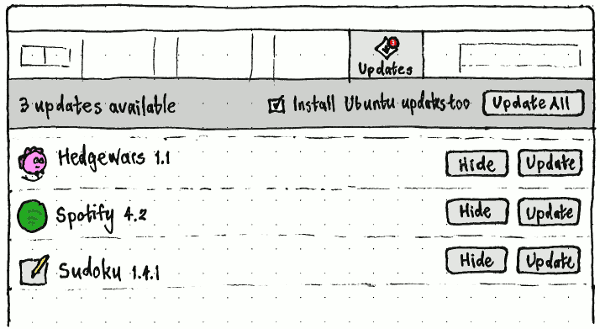 Updates
3 updates available Install Ubuntu updates too Update All
Hedgewars 1.1 Hide Update
Spotify 4.2 Hide Update
Sudoku 1.4.1 Hide Update